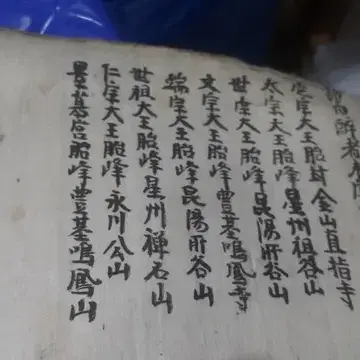 所者
定宗大王胎封金山直指寺
太宗大王胎峰星州祖谷山
世宗大王胎峰昆陽所谷山
文宗大王胎峰豊基鳴鳳寺
端宗大王胎峰昆陽所谷山
世祖大王胎峰星州禪石山
仁宗大王胎峰永川公山
景慕宮胎峰豊基鳴鳳山